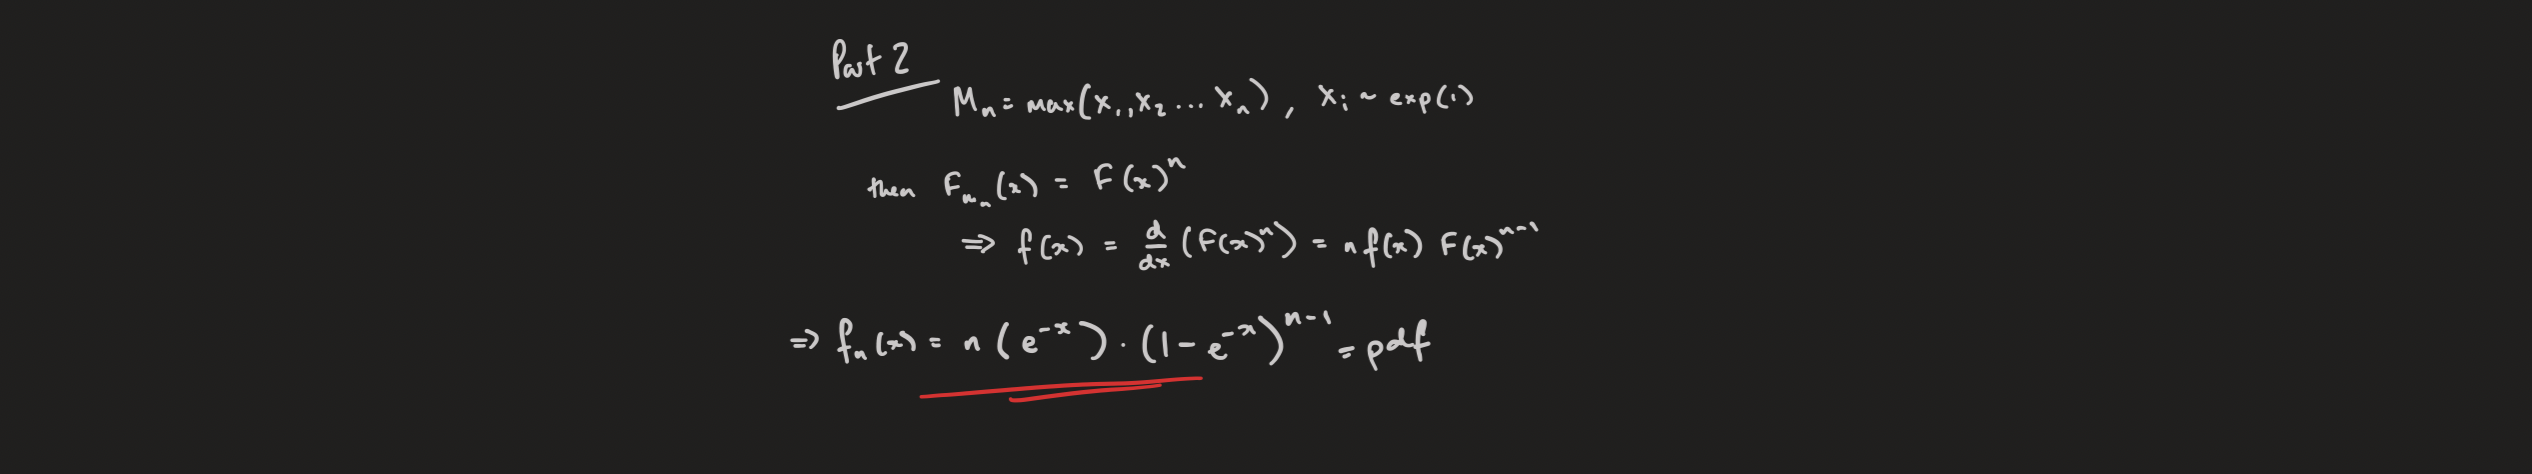 Part 2
Mₙ = max(x₁, x₂ ... xₙ), xᵢ ~ exp(1)
then F_{mₙ}(x) = F(x)ⁿ
⇒ f(x) = d/dx (F(x)ⁿ) = n f(x) F(x)ⁿ⁻¹
⇒ fₙ(x) = n (e⁻ˣ) · (1 - e⁻ˣ)ⁿ⁻¹ = pdf